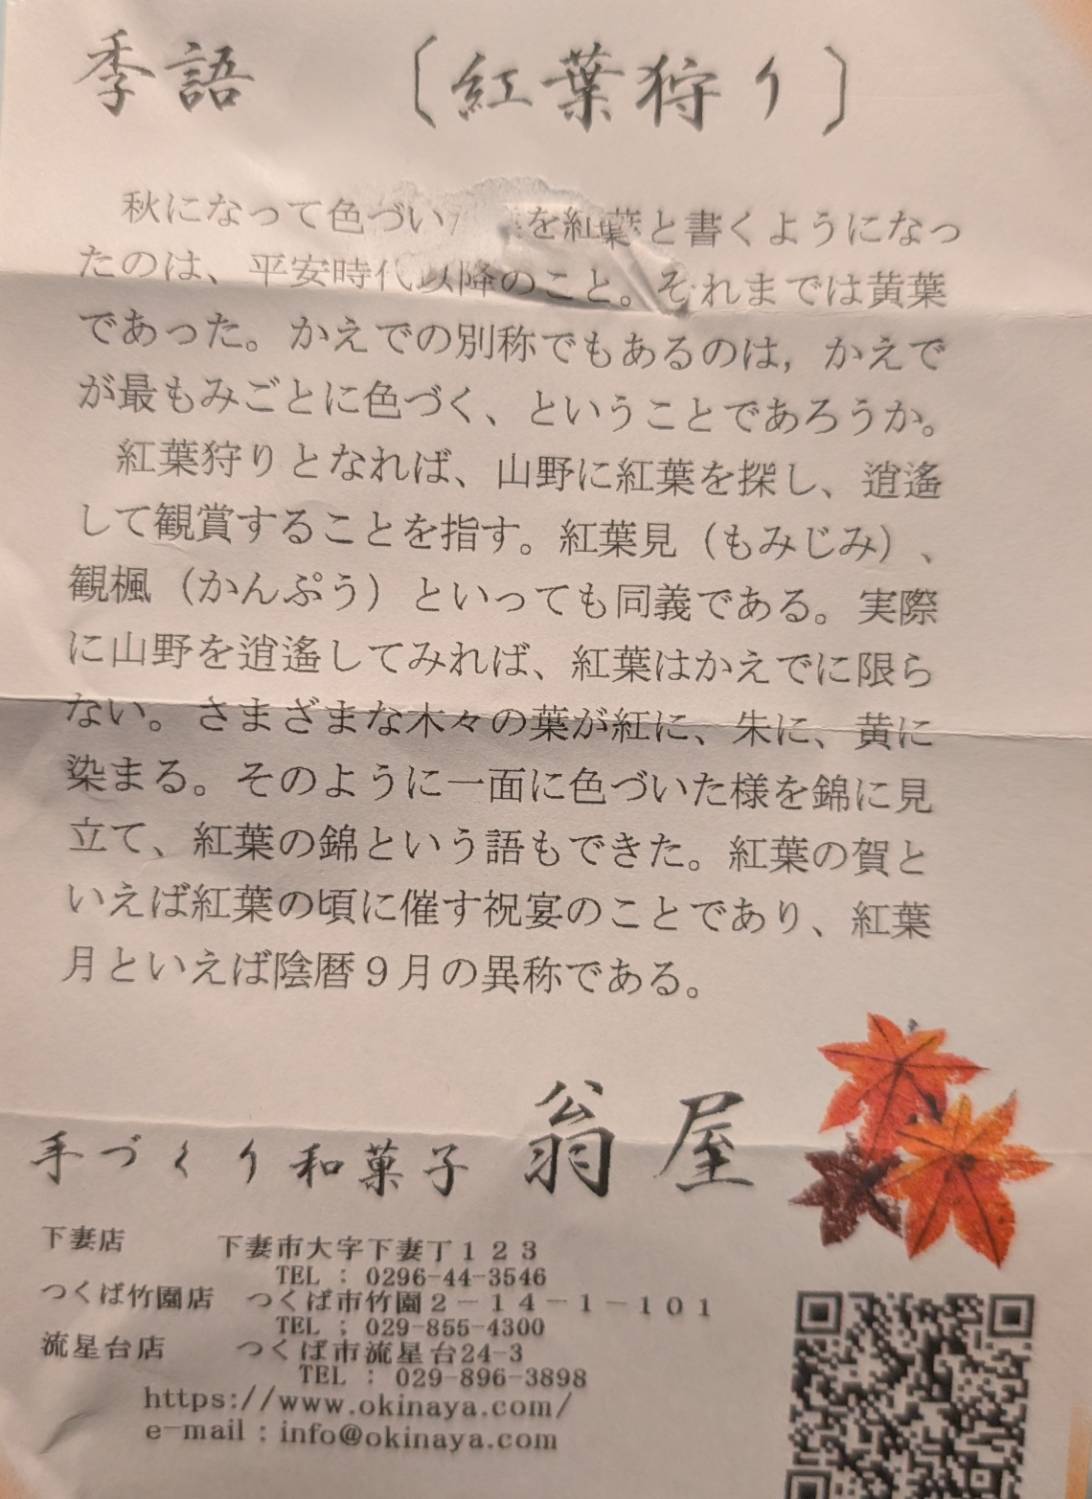 季語 〔紅葉狩り〕
秋になって色づい を紅葉と書くようになっ
たのは、平安時代以降のこと。それまでは黄葉
であった。かえでの別称でもあるのは，かえで
が最もみごとに色づく、ということであろうか。
紅葉狩りとなれば、山野に紅葉を探し、逍遙
して観賞することを指す。紅葉見（もみじみ）、
観楓（かんぷう）といっても同義である。実際
に山野を逍遙してみれば、紅葉はかえでに限ら
ない。さまざまな木々の葉が紅に、朱に、黄に
染まる。そのように一面に色づいた様を錦に見
立て、紅葉の錦という語もできた。紅葉の賀と
いえば紅葉の頃に催す祝宴のことであり、紅葉
月といえば陰暦９月の異称である。
手づくり和菓子 翁屋
下妻店 下妻市大字下妻丁１２３
TEL : 0296-44-3546
つくば竹園店 つくば市竹園２－１４－１－１０１
TEL ; 029-855-4300
流星台店 つくば市流星台24-3
TEL : 029-896-3898
https://www.okinaya.com/
e-mail : info@okinaya.com